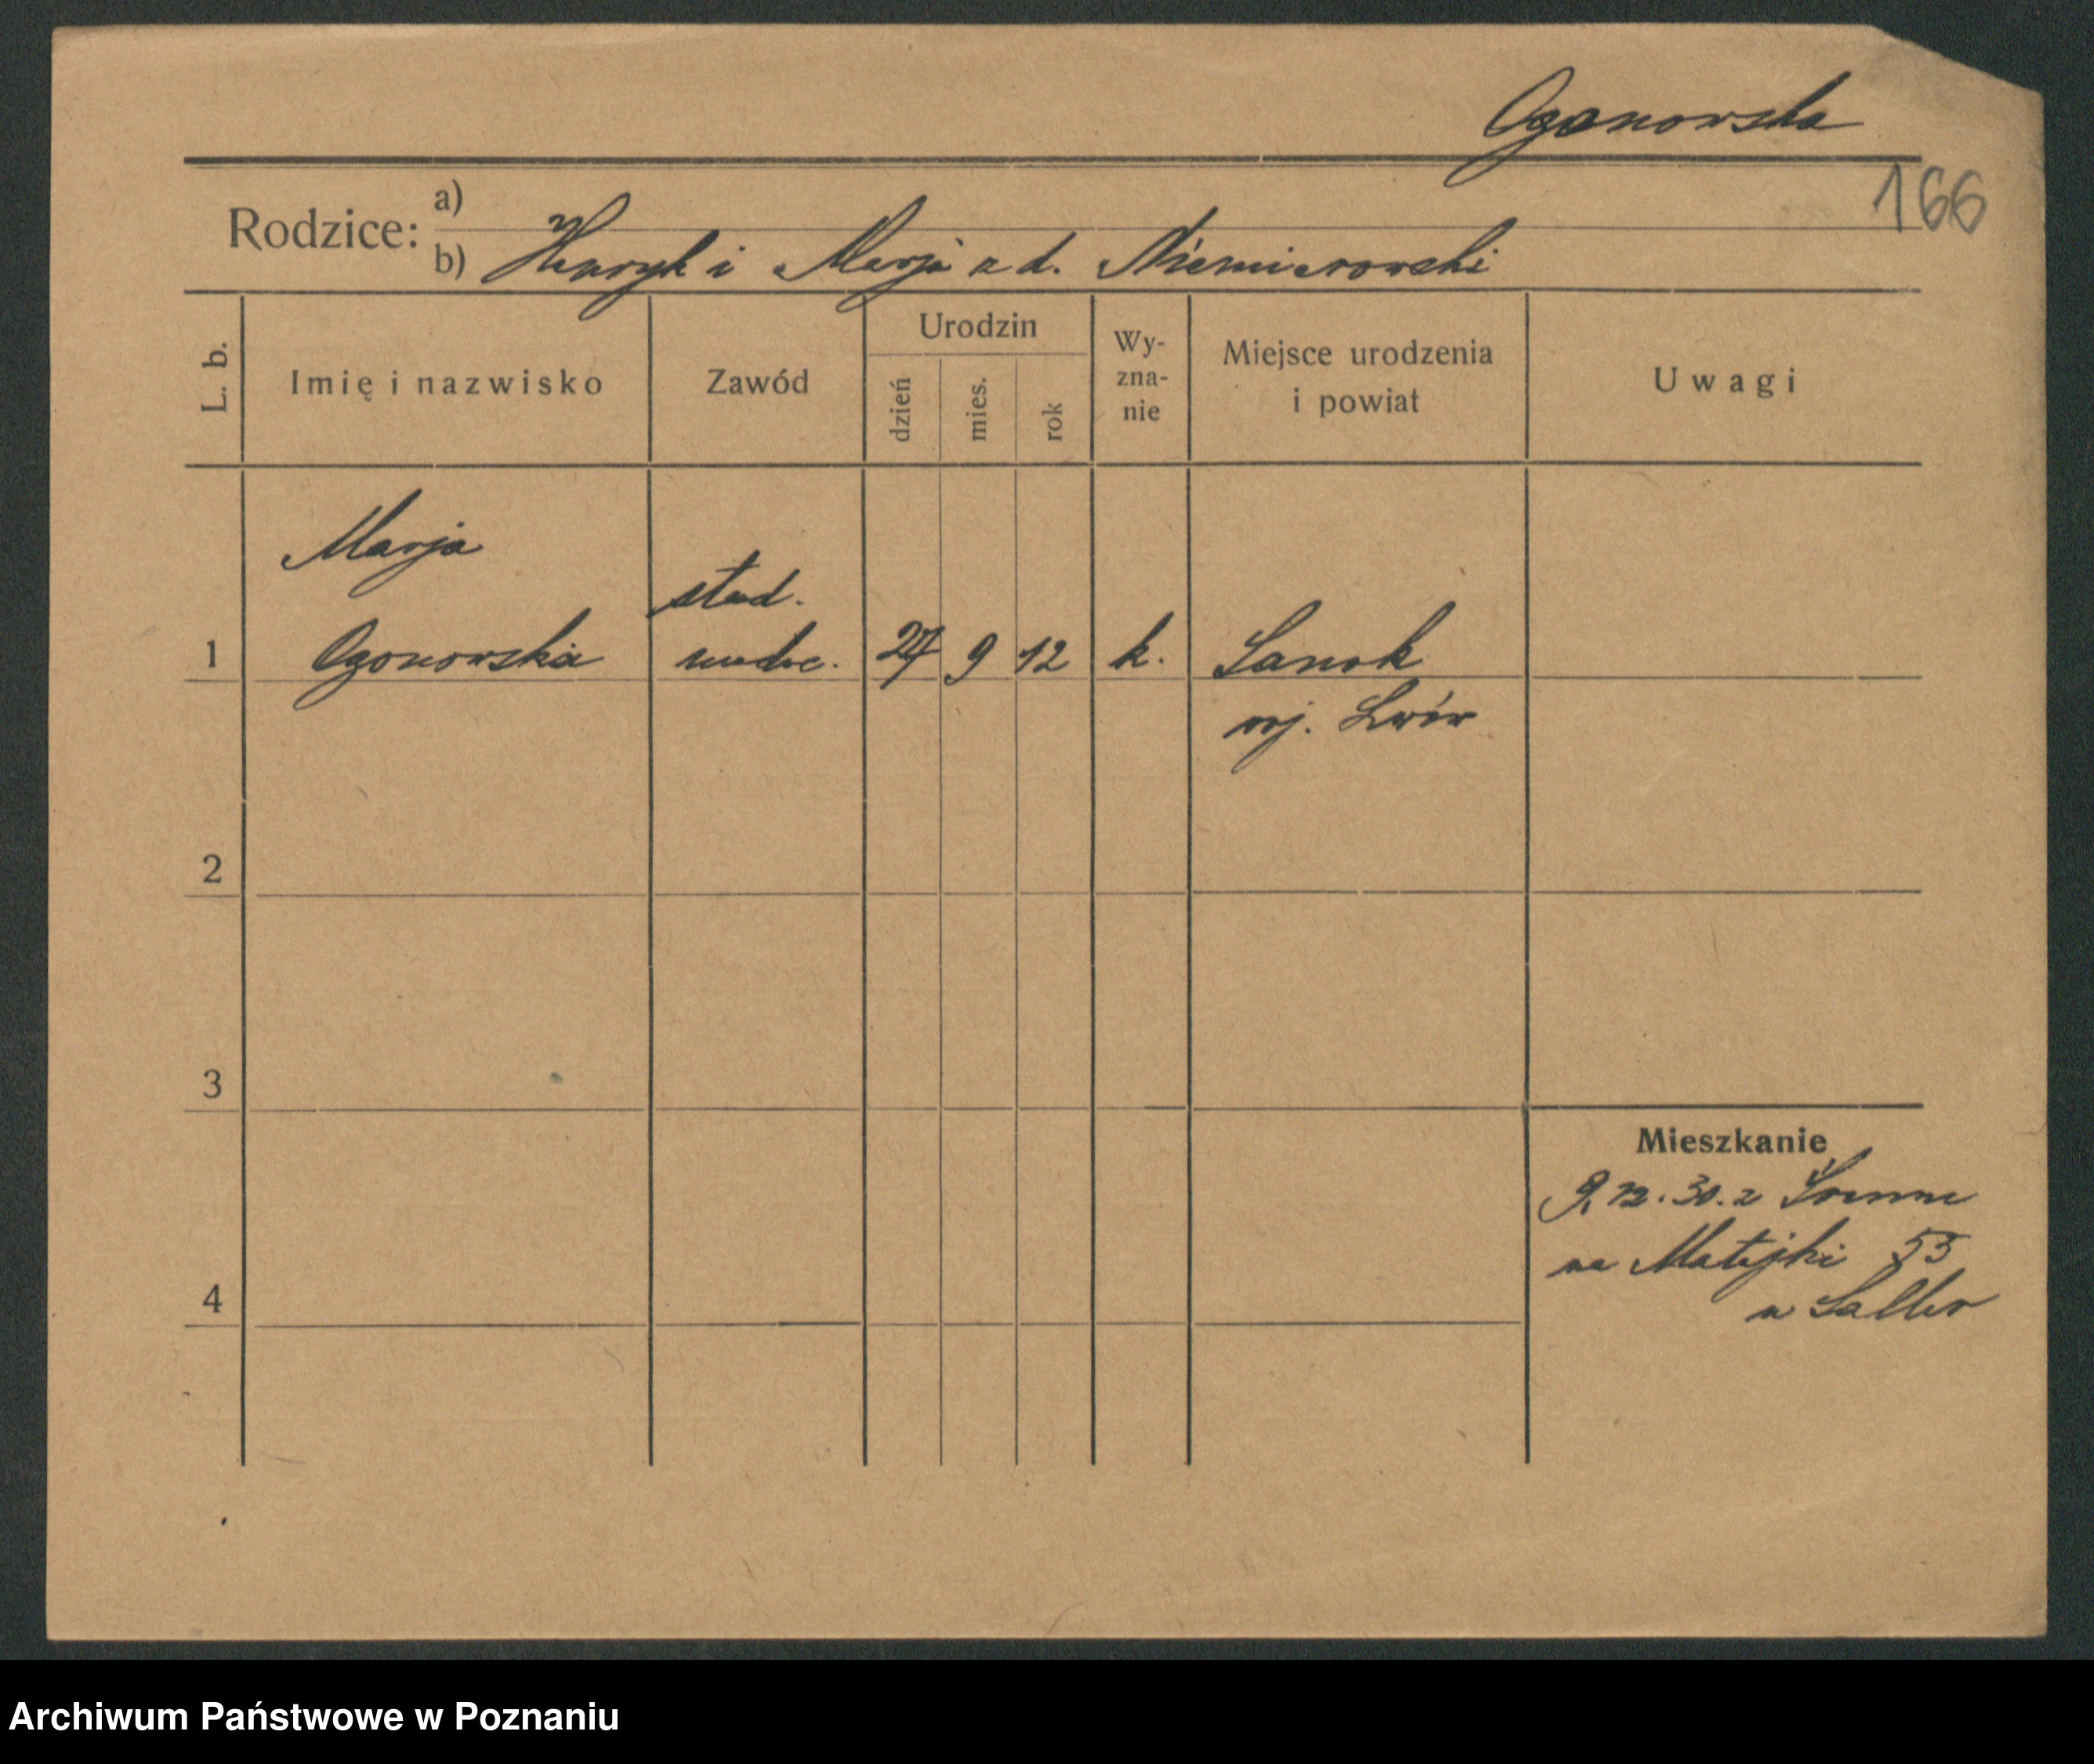 Ogonowska
166
Rodzice: a)
b) Henryk i Marja z d. Niemierowski
L. b.
Imię i nazwisko
Zawód
Urodzin
dzień
mies.
rok
Wy-
zna-
nie
Miejsce urodzenia
i powiat
Uwagi
Marja
stud.
1 Ogonowska 27 9 12 k. Sanok
woj. Lwów
2
3
Mieszkanie
9.12.30. z
na Matejki 55
4
Archiwum Państwowe w Poznaniu